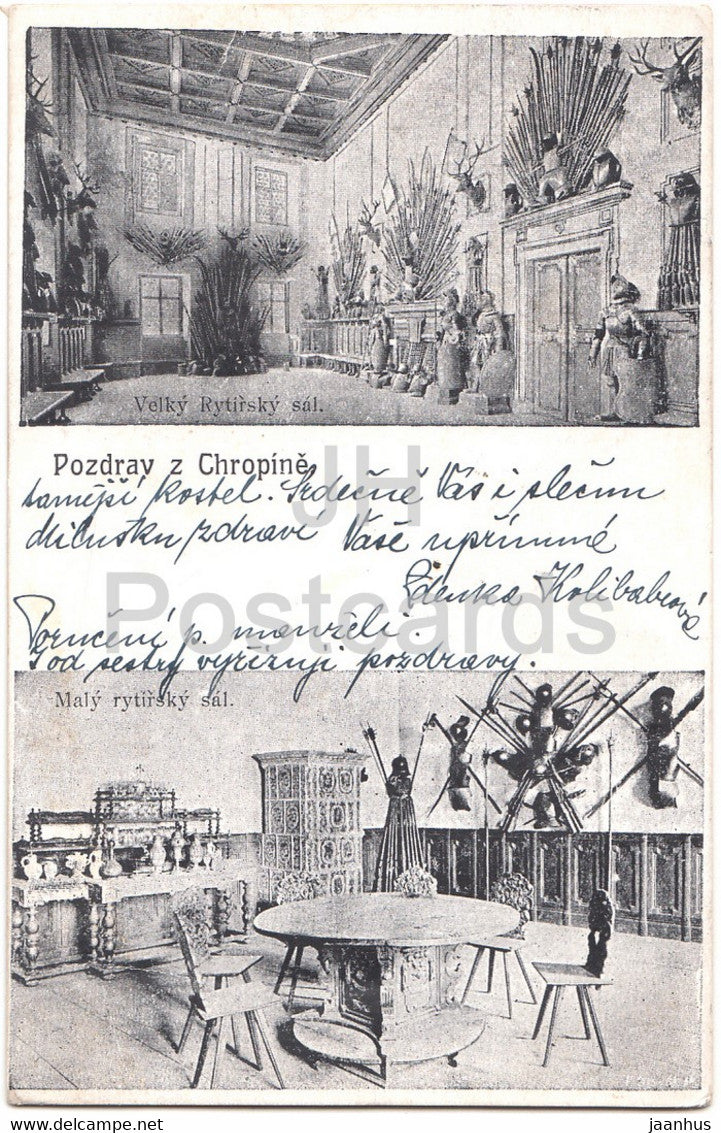 Velký Rytířský sál.
Pozdrav z Chropíně
tamější kostel. Srdečně Vás i slečnu
Milušku zdraví Vaše upřímná
Zdenka Kolibabová
Poručení p. manželi.
I od sestry vyřizuji pozdravy.
Malý rytířský sál.
JH
Postcards
jaanhus